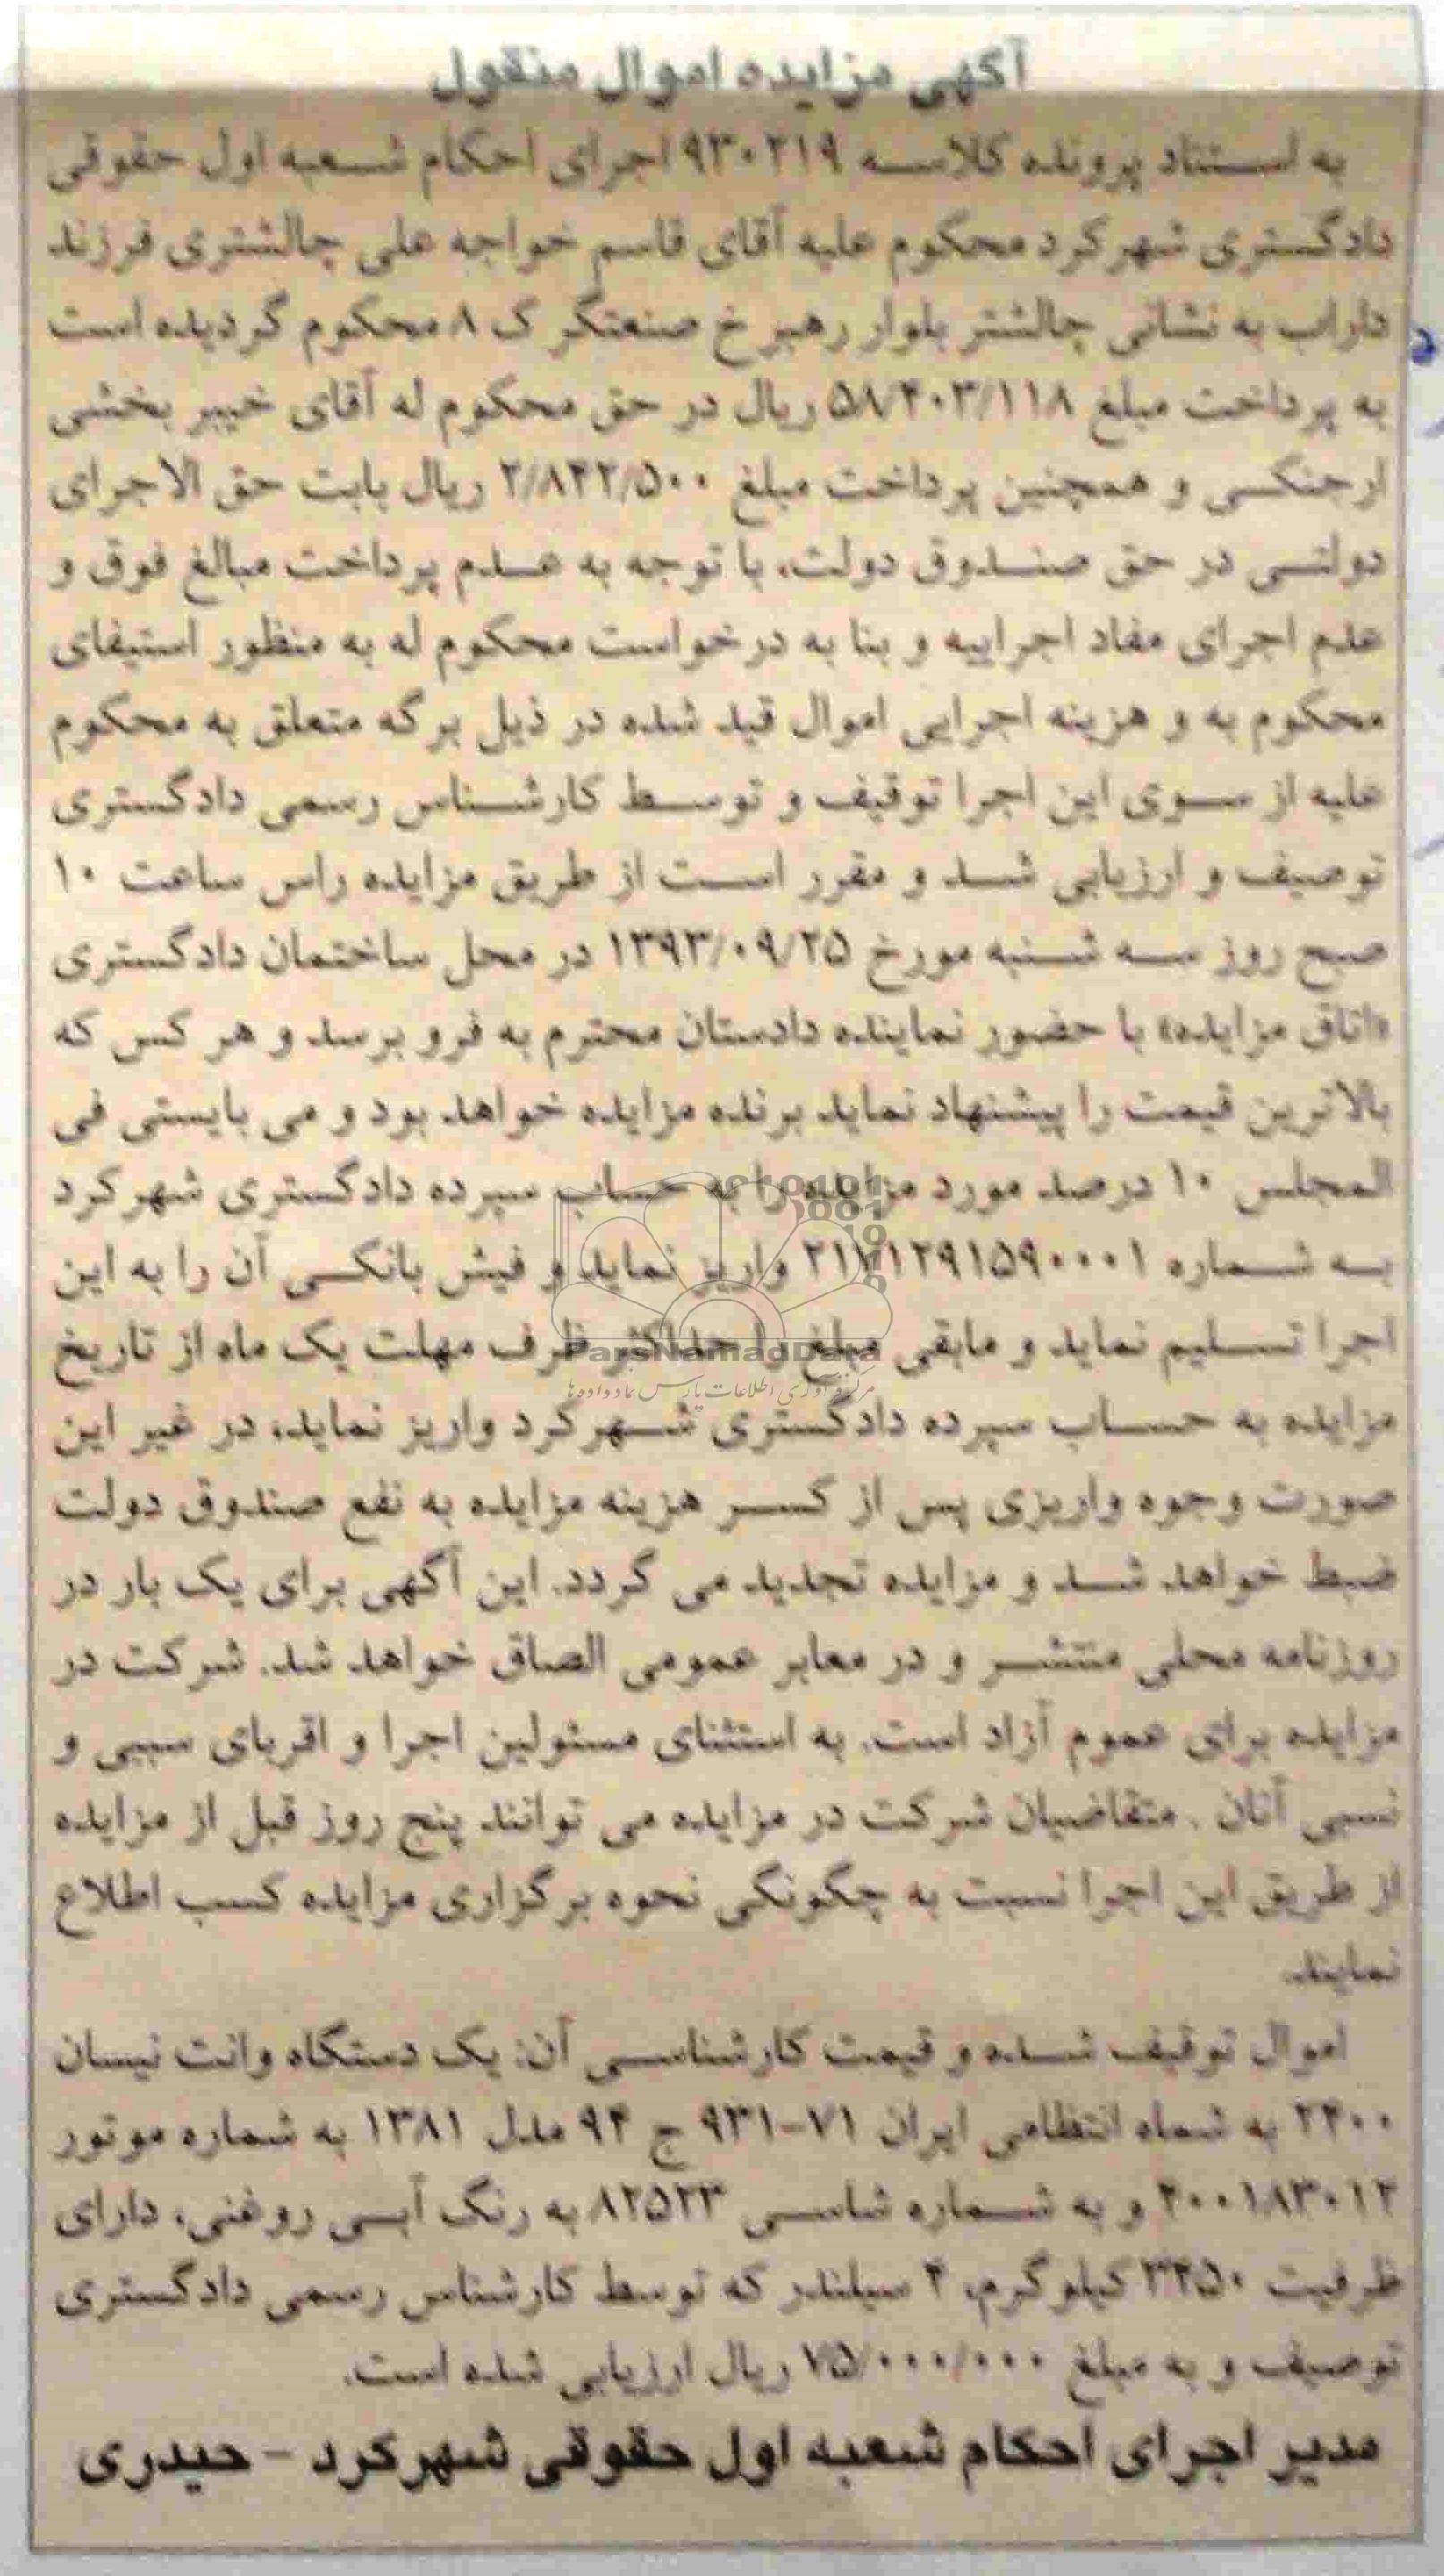 آگهی مزایده اموال منقول
به استناد پرونده کلاسه ۹۳۰۲۱۹ اجرای احکام شعبه اول حقوقی
دادگستری شهرکرد محکوم علیه آقای قاسم خواجه علی چالشتری فرزند
داراب به نشانی چالشتر بلوار رهبر خ صنعتگر ک ۸ محکوم گردیده است
به پرداخت مبلغ ۵۸/۴۰۳/۱۱۸ ریال در حق محکوم له آقای خیبر بخشی
ارجنکی و همچنین پرداخت مبلغ ۲/۸۴۲/۵۰۰ ریال بابت حق الاجرای
دولتی در حق صندوق دولت، با توجه به عدم پرداخت مبالغ فوق و
عدم اجرای مفاد اجراییه و بنا به درخواست محکوم له به منظور استیفای
محکوم به و هزینه اجرایی اموال قید شده در ذیل برگه متعلق به محکوم
علیه از سوی این اجرا توقیف و توسط کارشناس رسمی دادگستری
توصیف و ارزیابی شد و مقرر است از طریق مزایده راس ساعت ۱۰
صبح روز سه شنبه مورخ ۱۳۹۳/۰۹/۲۵ در محل ساختمان دادگستری
«اتاق مزایده» با حضور نماینده دادستان محترم به فرو برسد و هر کس که
بالاترین قیمت را پیشنهاد نماید برنده مزایده خواهد بود و می بایستی فی
المجلس ۱۰ درصد مورد مزایده را به حساب سپرده دادگستری شهرکرد
به شماره ۲۱۷۱۲۹۱۵۹۰۰۰۱ واریز نماید و فیش بانکی آن را به این
اجرا تسلیم نماید و مابقی مبلغ را حداکثر ظرف مهلت یک ماه از تاریخ
ParsNamadData
مرکز فرآوری اطلاعات پارس نماد داده ها
مزایده به حساب سپرده دادگستری شهرکرد واریز نماید، در غیر این
صورت وجوه واریزی پس از کسر هزینه مزایده به نفع صندوق دولت
ضبط خواهد شد و مزایده تجدید می گردد. این آگهی برای یک بار در
روزنامه محلی منتشر و در معابر عمومی الصاق خواهد شد. شرکت در
مزایده برای عموم آزاد است. به استثنای مسئولین اجرا و اقربای سببی و
نسبی آنان . متقاضیان شرکت در مزایده می توانند پنج روز قبل از مزایده
از طریق این اجرا نسبت به چگونگی نحوه برگزاری مزایده کسب اطلاع
نمایند.
اموال توقیف شده و قیمت کارشناسی آن: یک دستگاه وانت نیسان
۲۴۰۰ به شماه انتظامی ایران ۷۱-۹۳۱ ج ۹۴ مدل ۱۳۸۱ به شماره موتور
۴۰۰۱۸۳۰۱۲ و به شماره شاسی ۸۲۵۲۳ به رنگ آبی روغنی، دارای
ظرفیت ۳۲۵۰ کیلوگرم، ۴ سیلندر که توسط کارشناس رسمی دادگستری
توصیف و به مبلغ ۷۵/۰۰۰/۰۰۰ ریال ارزیابی شده است.
مدیر اجرای احکام شعبه اول حقوقی شهرکرد - حیدری